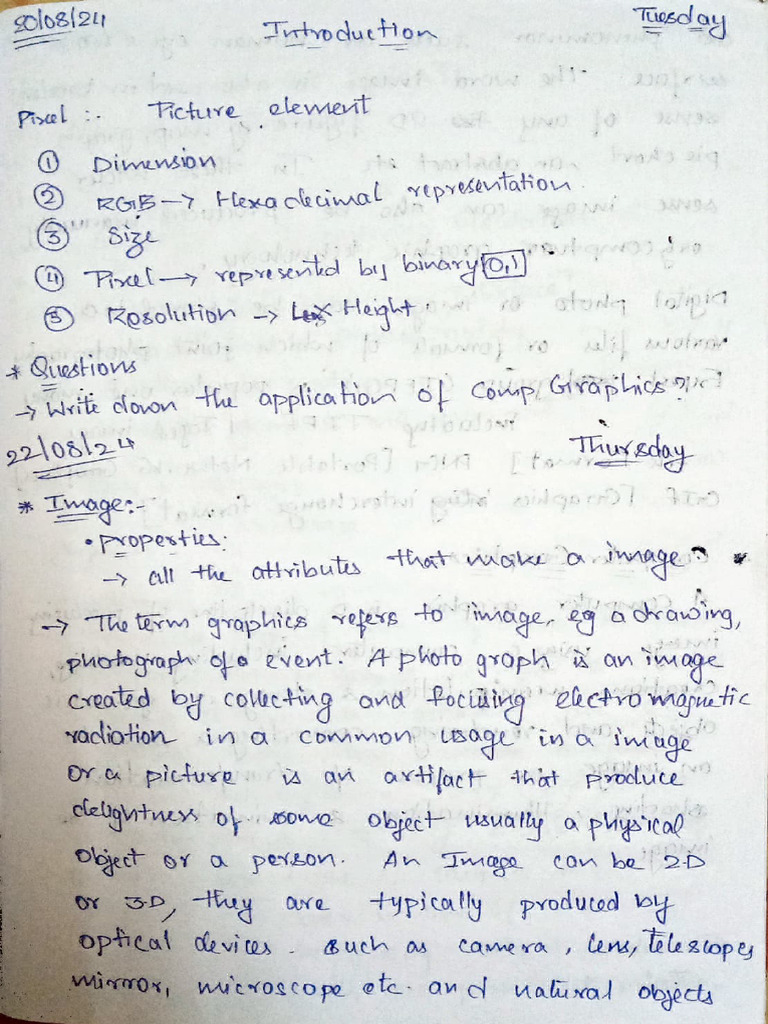 20/08/24 Introduction Tuesday
Pixel :- Picture element
① Dimension
② RGB → Hexadecimal representation
③ Size
④ Pixel → represented by binary 0,1
⑤ Resolution → Height
* Questions
→ Write down the application of Comp, Graphics?
22/08/24 Thursday
* Image:-
• properties:
→ all the attributes that make a image
→ The term graphics refers to image, eg a drawing,
photograph of a event. A photo graph is an image
created by collecting and focusing electromagnetic
radiation in a common usage in a image
or a picture is an artifact that produce
delightness of some object usually a physical
object or a person. An Image can be 2-D
or 3-D, they are typically produced by
optical devices. such as camera, lens, Telescopes
mirror, microscope etc. and natural objects